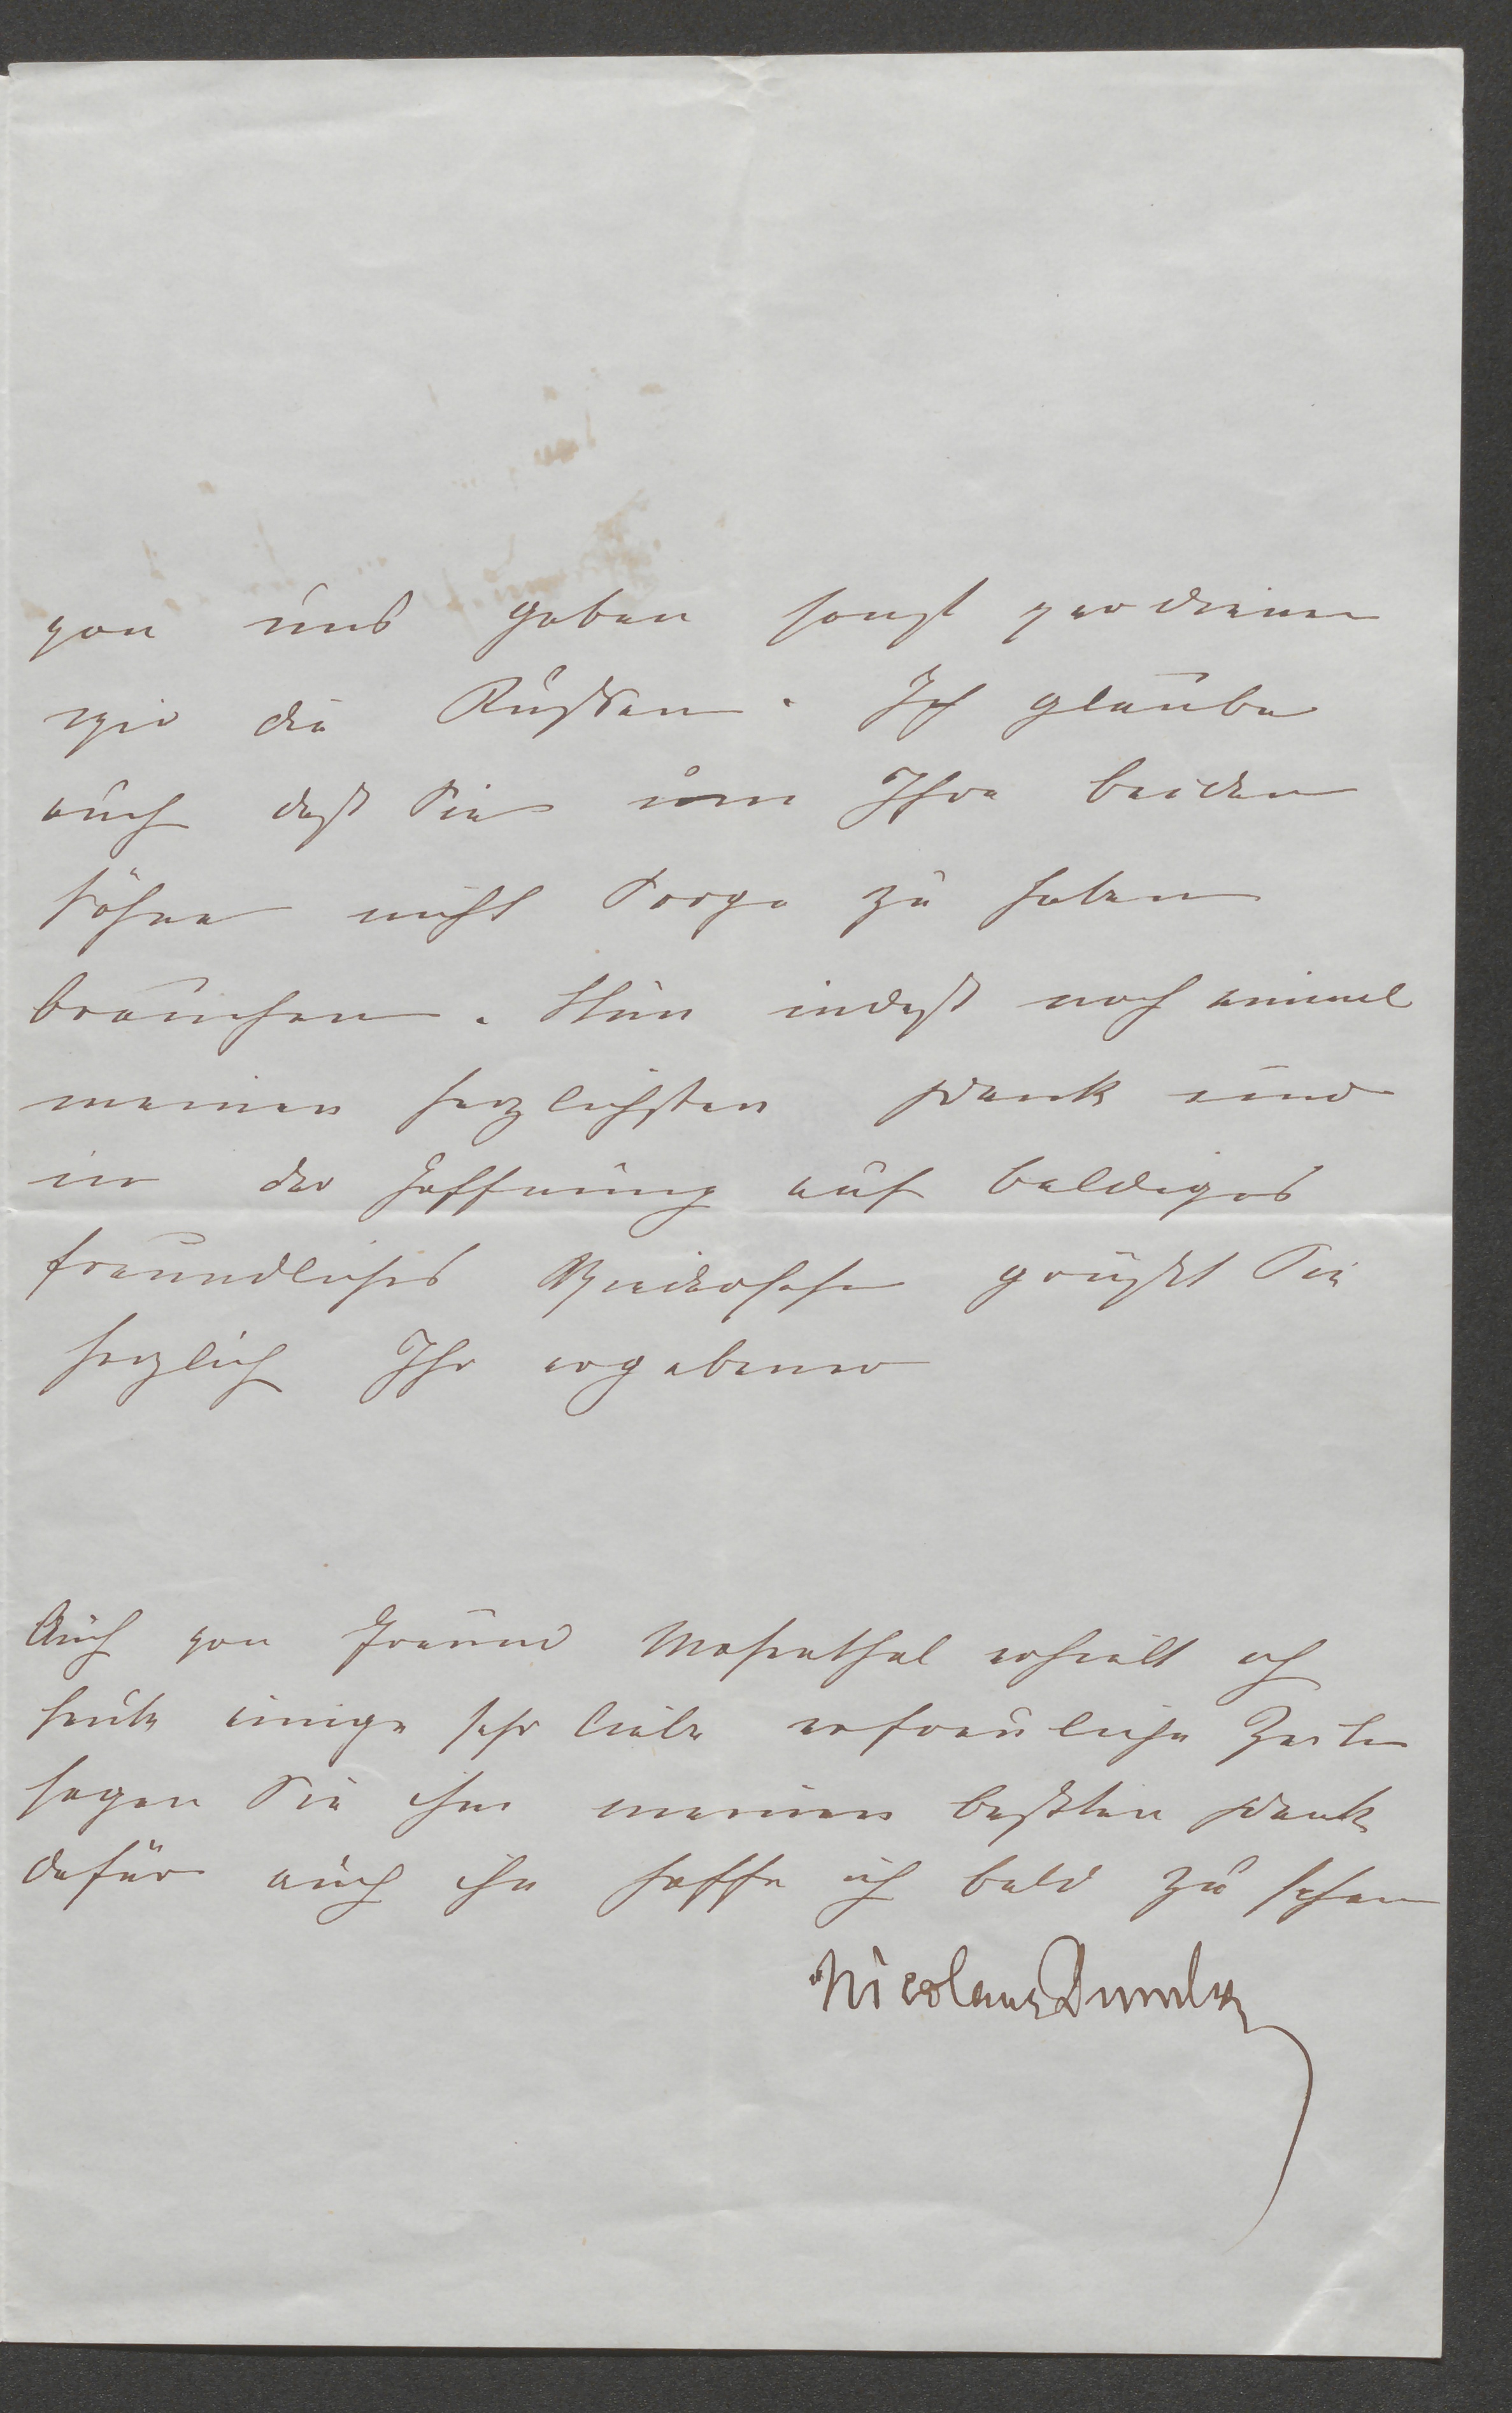 von uns geben sonst verdienen
wir die Russen. Ich glaube
auch daß Sie um Ihre beiden
Söhne nicht Sorge zu haben
brauchen. Nun indeß noch einmal
meinen herzlichsten Dank und
in der Hoffnung auf baldiges
freundliches Wiedersehen grüßt Sie
herzlich Ihr ergebener
Auch von Freund Mosenthal erhielt ich
heute einige sehr liebe erfreuliche Zeilen
sagen Sie ihm meinen beßten Dank
dafür auch ihn hoffe ich bald zu sehen
Nicolaus Dumba